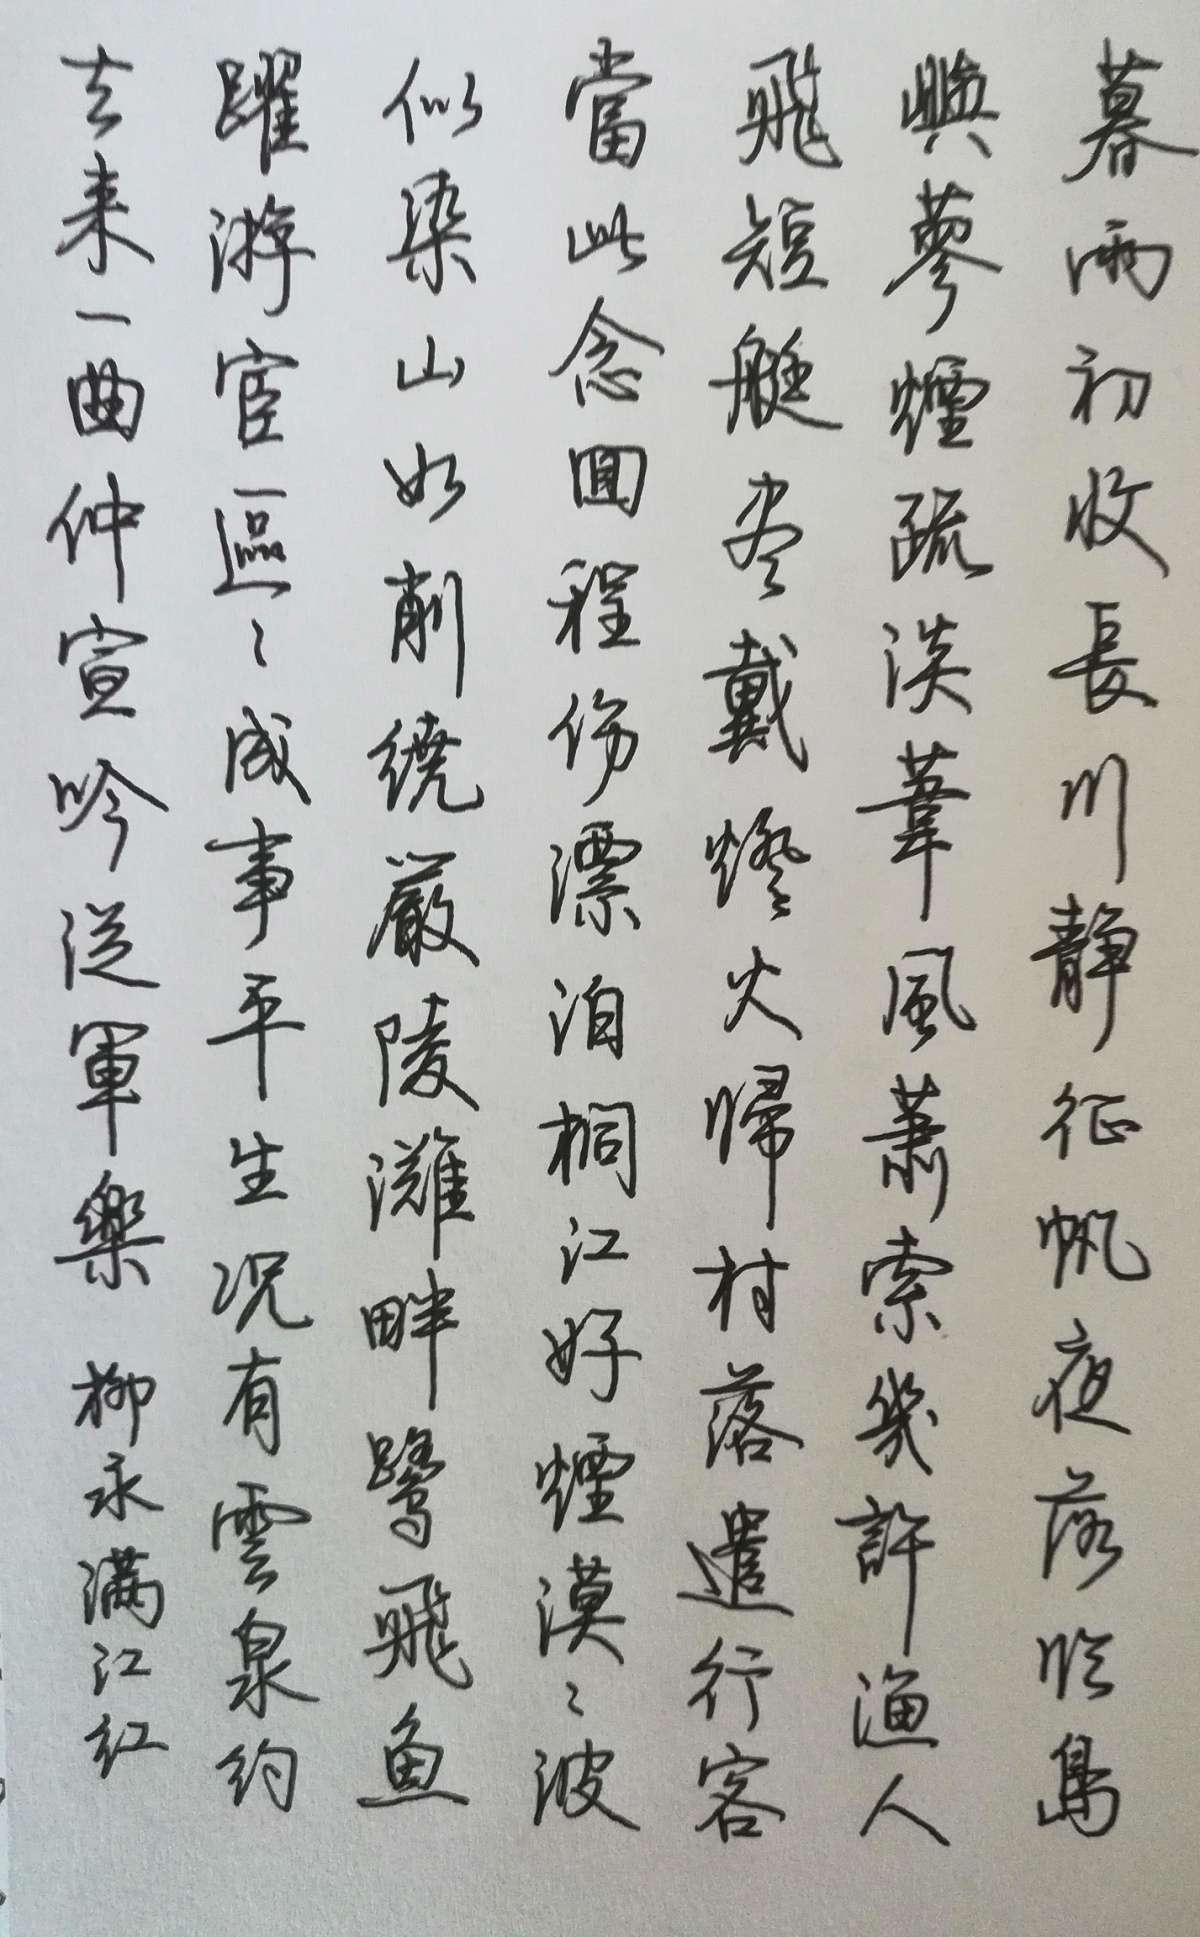 暮雨初收長川靜征帆夜落臨島
嶼蓼煙疏淡葦風蕭索幾許漁人
飛短艇盡戴燈火歸村落遣行客
當此念回程傷漂泊桐江好煙漠〻波
似染山如削繞嚴陵灘畔鷺飛魚
躍游宦區〻成事平生況有雲泉約
去来一曲仲宣吟從軍樂 柳永满江红